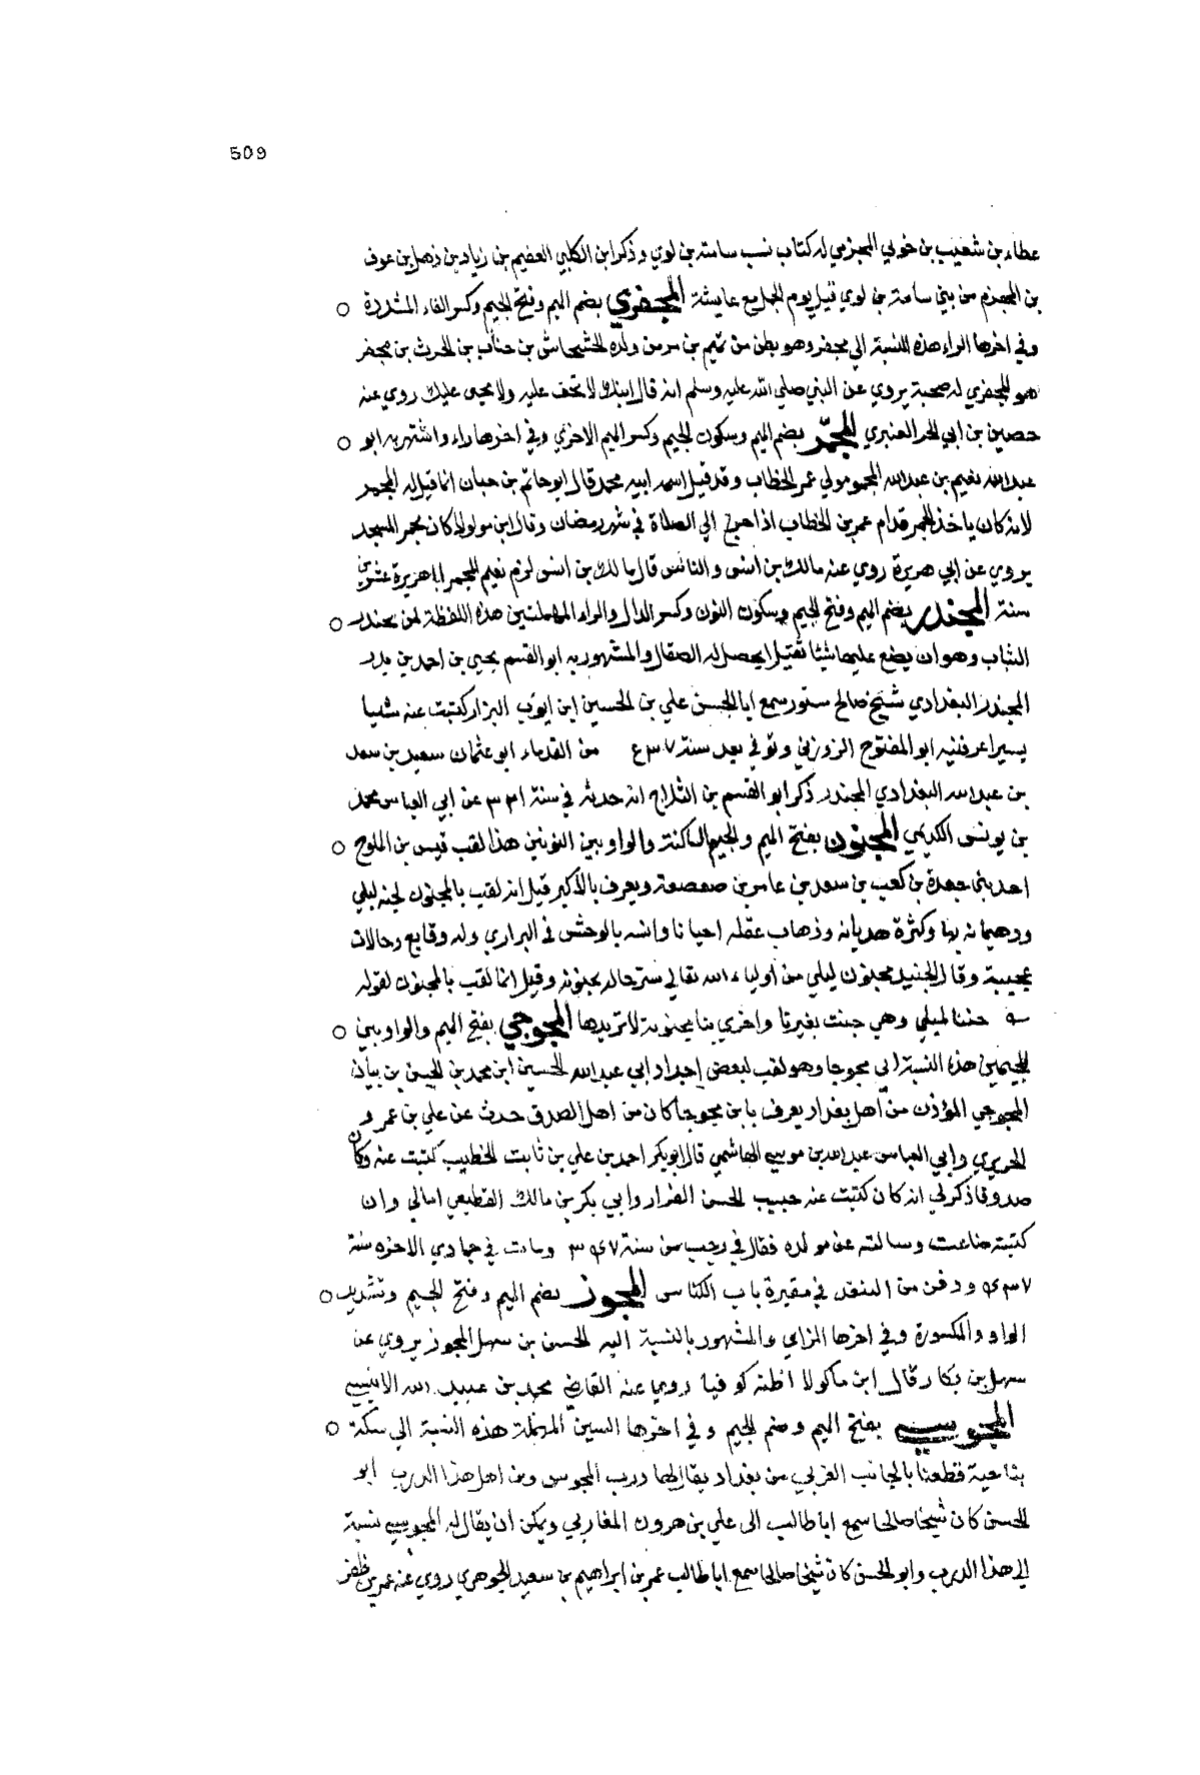 509
عطاء بن شعيب بن خولي المجزمي له كتاب نسب سامة بن لوي وذكر ابن الكلبي العقيم بن زياد بن ذهل بن عوف
بن المجزم من بني سامة بن لوي قتل يوم الجمل مع عايشة المجفري بضم الميم وفتح الجيم وكسر الفاء المشددة ○
وفي اخرها الراء هذه النسبة الي مجفر وهو بطن من تميم بن مر من ولده الخشخاش بن جناب بن الحرث بن مجفر
هو المجفري له صحبة يروي عن النبي صلي الله عليه وسلم انه قال ابنك لا تجني عليه ولا يجني عليك روي عنه
حصين بن ابي الحر العنبري المجمر بضم الميم وسكون الجيم وكسر الميم الاخري وفي اخرها راء واشتهر به ابو ○
عبدالله نعيم بن عبدالله المجمر مولي عمر الخطاب وقد قيل اسم ابيه محمد قال ابو حاتم بن حبان انما قيل له المجمر
لانه كان ياخذ المجمر قدام عمر بن الخطاب اذا خرج الي الصلاة في شهر رمضان وقال ابن مولوله كان يجمر المسجد
يروي عن ابي هريرة روي عنه مالك بن انس والناس قال مالك بن انس لزم نعيم المجمر اباهريرة عشرين
سنة المجندر بضم الميم وفتح الجيم وسكون النون وكسر الدال والراء المهملتين هذه اللفظة لمن يجندر ○
الثياب وهو ان يضع عليها شيئا ثقيلا يحصل له الصقال والمشهور به ابو القسم يحيي بن احمد بن بدر
المجندر البغدادي شيخ صالح ستور سمع ابا الحسن علي بن الحسين ابن ايوب البزار كتبت عنه شيا
يسيرا عرفنيه ابو المفتوح الزوزني وتوفي بعد سنة ٤٣٧ من القدماء ابو عثمان سعيد بن سعد
بن عبدالله البغدادي المجندر ذكر ابو القسم بن الثلاج انه حدثه في سنة ٣٣١ عن ابي العباس محمد
بن يونس الكديمي المجنون بفتح الميم والجيم الساكنة والواو بين النونين هذا لقب قيس بن الملوح ○
احد بني جعدة بن كعب بن سعد بن عامر بن صعصعة ويعرف بالاكبر قيل انه لقب بالمجنون لحبه ليلي
وهيمانه بها وكثرة هديانه وذهاب عقله احيانا وانسه بالوحش في البراري وله وقايع وحالات
عجيبة وقال الجنيد مجنون ليلي من اولياء الله تعالي ستر حاله بجنونه وقيل انما لقب بالمجنون لقوله
جننا لميلي وهي جنت بغيرنا واخري بنا مجنونة لا نريدها المجوجي بفتح الميم والواو بين ○
الجيمين هذه النسبة الي مجوجا وهو لقب لبعض اجداد ابي عبدالله الحسين ابن محمد بن الحسن بن بيان
المجوجي المؤذن من اهل بغداد يعرف بابن مجوجا كان من اهل الصدق حدث عن علي بن عمر
الحريري وابي العباس عبدالله بن موسي الهاشمي قال ابو بكر احمد بن علي بن ثابت الخطيب كتبت عنه وكان
صدوقا ذكر لي انه كان كتبت عنه حبيب الحسن القزار وابي بكر بن مالك القطيعي امالي وان
كتبته ضاعت وسالته عن مولده فقال في رجب من سنة ٣٤٧ ومات في جمادي الاخره سنة
٤٣٧ ودفن من الغد في مقبرة باب الكناس المجوز بضم الميم وفتح الجيم وتشديد ○
الواو والمكسورة وفي اخرها الزاي والمشهور بالنسبة اليه الحسن بن سهل المجوز يروي عن
سهل بن بكار وقال ابن ماكولا اظنه كو فيا روي عنه القاضي محمد بن عبيد الله الانيسي
المجوسي بفتح الميم وضم الجيم وفي اخرها السين المهملة هذه النسبة الي سكة ○
بناحية قطعنا بالجانب الغربي من بغداد يقال لها درب المجوس ومن اهل هذا الدرب ابو
الحسن كان شيخا صالحا سمع اباطالب الى علي بن هرون المغاربي ويمكن ان يقال له المجوسي نسبة
الي هذا الدرب وابو الحسن كان شيخا صالحا سمع اباطالب عمر بن ابراهيم بن سعيد الجوهري روي عنه عمر بن ظفر